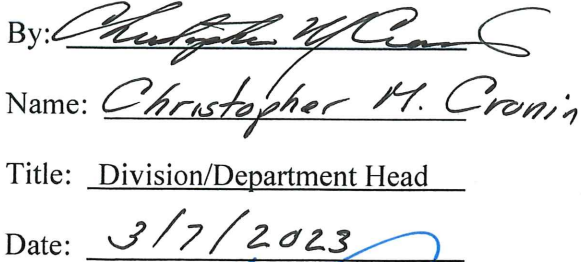 By: Christopher M Cronin
Name: Christopher M. Cronin
Title: Division/Department Head
Date: 3/7/2023